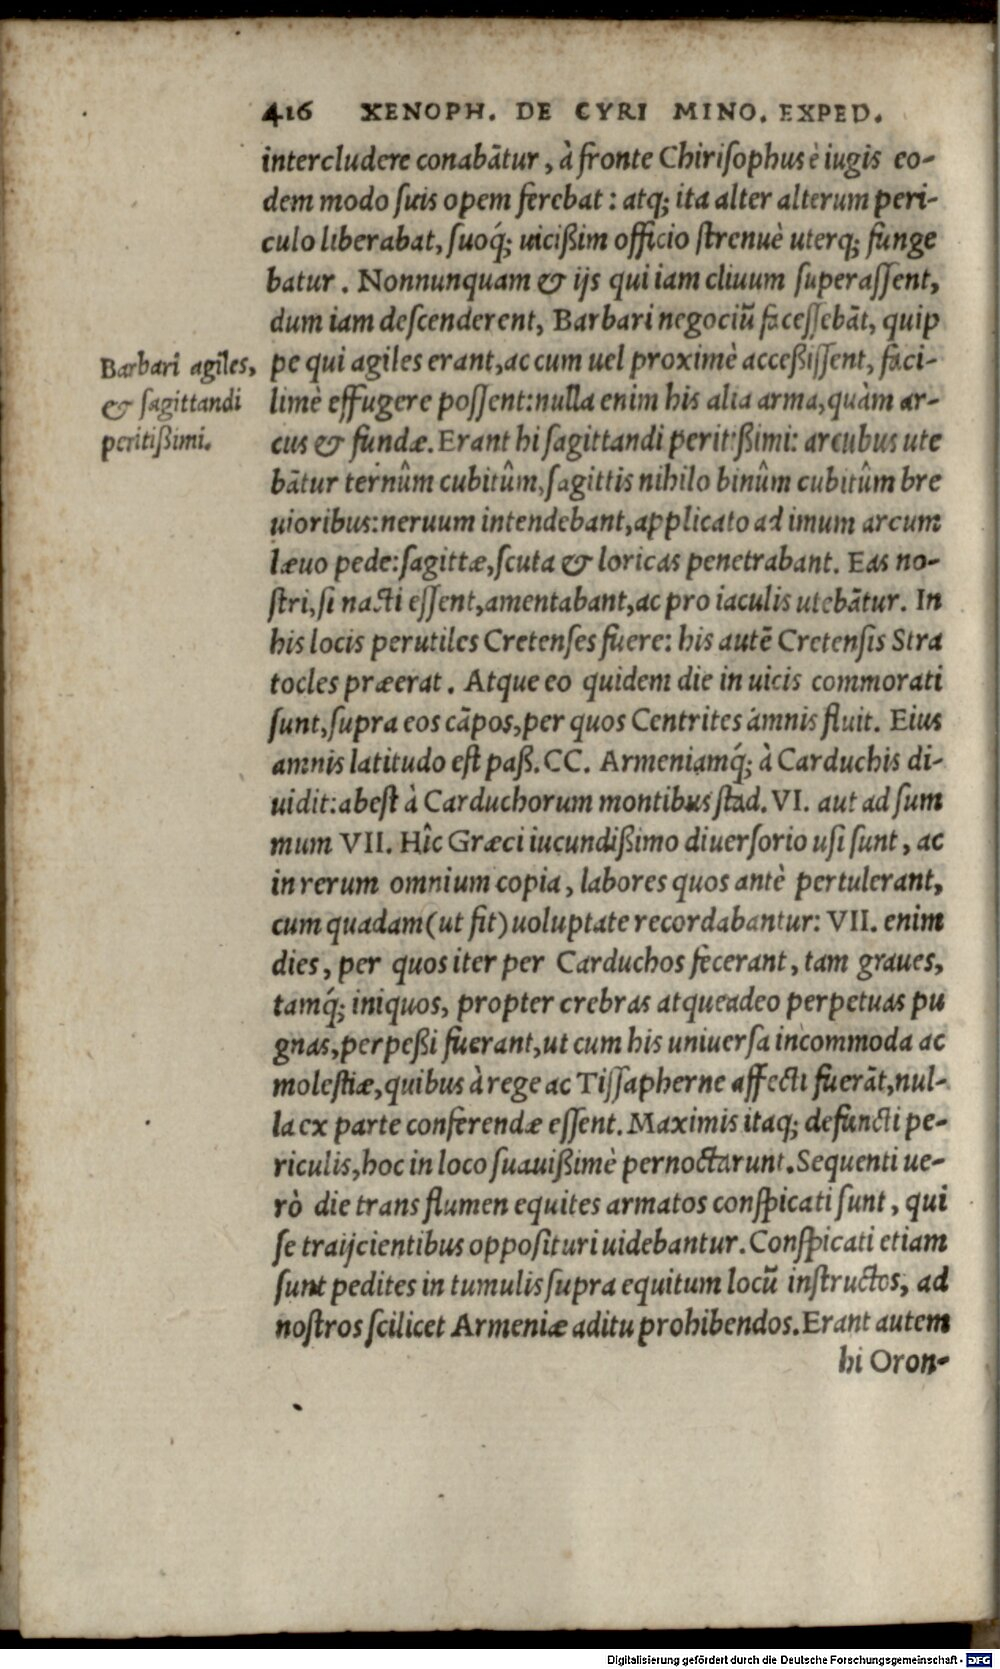 416 XENOPH. DE CYRI MINO. EXPED.
intercludere conabātur, à fronte Chirisophus è iugis eo-
dem modo suis opem ferebat: atq; ita alter alterum peri-
culo liberabat, suoq́; uicißim officio strenuè uterq; funge
batur. Nonnunquam & ijs qui iam cliuum superassent,
dum iam descenderent, Barbari negociū facessebāt, quip
pe qui agiles erant, ac cum uel proximè acceßissent, faci-
limè effugere possent: nulla enim his alia arma, quàm ar-
cus & fundæ. Erant hi sagittandi peritißimi: arcubus ute
bātur ternûm cubitûm, sagittis nihilo binûm cubitûm bre
uioribus: neruum intendebant, applicato ad imum arcum
læuo pede: sagittæ, scuta & loricas penetrabant. Eas no-
stri, si nacti essent, amentabant, ac pro iaculis utebātur. In
his locis perutiles Cretenses fuere: his autē Cretensis Stra
tocles præerat. Atque eo quidem die in uicis commorati
sunt, supra eos cāpos, per quos Centrites amnis fluit. Eius
amnis latitudo est paß. CC. Armeniamq́; à Carduchis di-
uidit: abest à Carduchorum montibus stad. VI. aut ad sum
mum VII. Hîc Græci iucundißimo diuersorio usi sunt, ac
in rerum omnium copia, labores quos antè pertulerant,
cum quadam (ut fit) uoluptate recordabantur: VII. enim
dies, per quos iter per Carduchos fecerant, tam graues,
tamq́; iniquos, propter crebras atqueadeo perpetuas pu
gnas, perpeßi fuerant, ut cum his uniuersa incommoda ac
molestiæ, quibus à rege ac Tissapherne affecti fuerāt, nul-
la ex parte conferendæ essent. Maximis itaq; defuncti pe-
riculis, hoc in loco suauißimè pernoctarunt. Sequenti ue-
rò die trans flumen equites armatos conspicati sunt, qui
se traijcientibus opposituri uidebantur. Conspicati etiam
sunt pedites in tumulis supra equitum locū instructos, ad
nostros scilicet Armeniæ aditu prohibendos. Erant autem
hi Oron-
Barbari agiles,
& sagittandi
peritißimi.
Digitalisierung gefördert durch die Deutsche Forschungsgemeinschaft - DFG